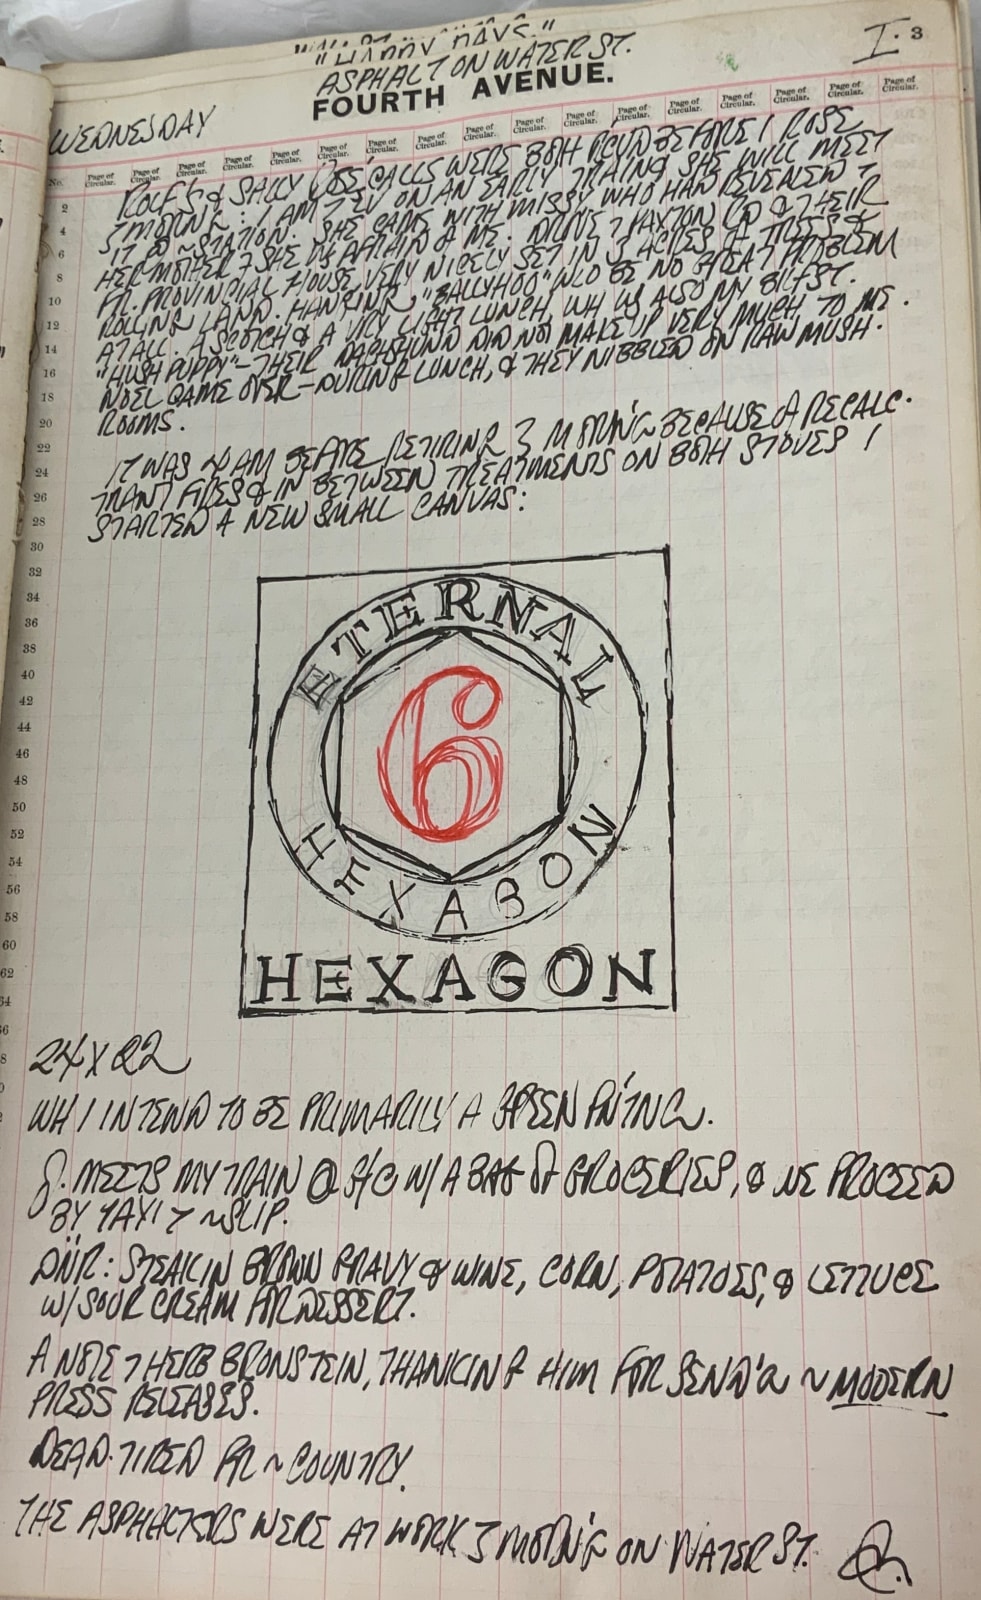 "HAPPY DAYS."
ASPHALT ON WATER ST.
I. 3
FOURTH AVENUE.
WEDNESDAY
No. Page of Circular. Page of Circular. Page of Circular. Page of Circular. Page of Circular. Page of Circular. Page of Circular. Page of Circular. Page of Circular. Page of Circular. Page of Circular. Page of Circular. Page of Circular. Page of Circular. Page of Circular. Page of Circular. Page of Circular.
ROLF'S & SALLY CALLS WERE BOTH BEFORE I ROSE
MORN'G: I AM ON AN EARLY TRAIN & SHE WILL MEET
IT @ ~ STATION. SHE CAME WITH MISSY WHO HAD REVEALED 7
HER MOTHER 7 SHE WS AFRAID OF ME. DRIVE 7 PAXTON & THEIR
FR. PROVINCIAL HOUSE, VERY NICELY SET IN 3 ACRES OF TREES &
ROLLING LAND. HANGING "BALLYHOO" WLD BE NO GREAT PROBLEM
AT ALL. A SCOTCH & A VERY LIGHT LUNCH, WH WS ALSO MY BKFST.
"HUSH PUPPY" – THEIR DACHSHUND DID NOT MAKE UP VERY MUCH TO ME.
NOEL CAME OVER – DURING LUNCH, & THEY NIBBLED ON RAW MUSH-
ROOMS.
IT WAS 4 AM BEFORE RETIRING 3 MORN'G BECAUSE OF RECALC-
TRANT FIRES & IN BETWEEN TREATMENTS ON BOTH STOVES I
STARTED A NEW SMALL CANVAS:
ETERNAL
6
HEXAGON
HEXAGON
24 X 22
WH I INTEND TO BE PRIMARILY A GREEN P'NT'NG.
G. MEETS MY TRAIN @ G/C W/ A BAG OF GROCERIES, & WE PROCEED
BY TAXI 7 ~ SLIP.
DNR: STEAK IN BROWN GRAVY & WINE, CORN, POTATOES, & LETTUCE
W/ SOUR CREAM FOR DESSERT.
A NOTE 7 HERB BRONSTEIN, THANKING HIM FOR SEND'G ~ MODERN
PRESS RELEASES.
DEAD-TIRED FR ~ COUNTRY.
THE ASPHALTERS WERE AT WORK 3 MORN'G ON WATER ST.
2
4
6
8
10
12
14
16
18
20
22
24
26
28
30
32
34
36
38
40
42
44
46
48
50
52
54
56
58
60
62
64